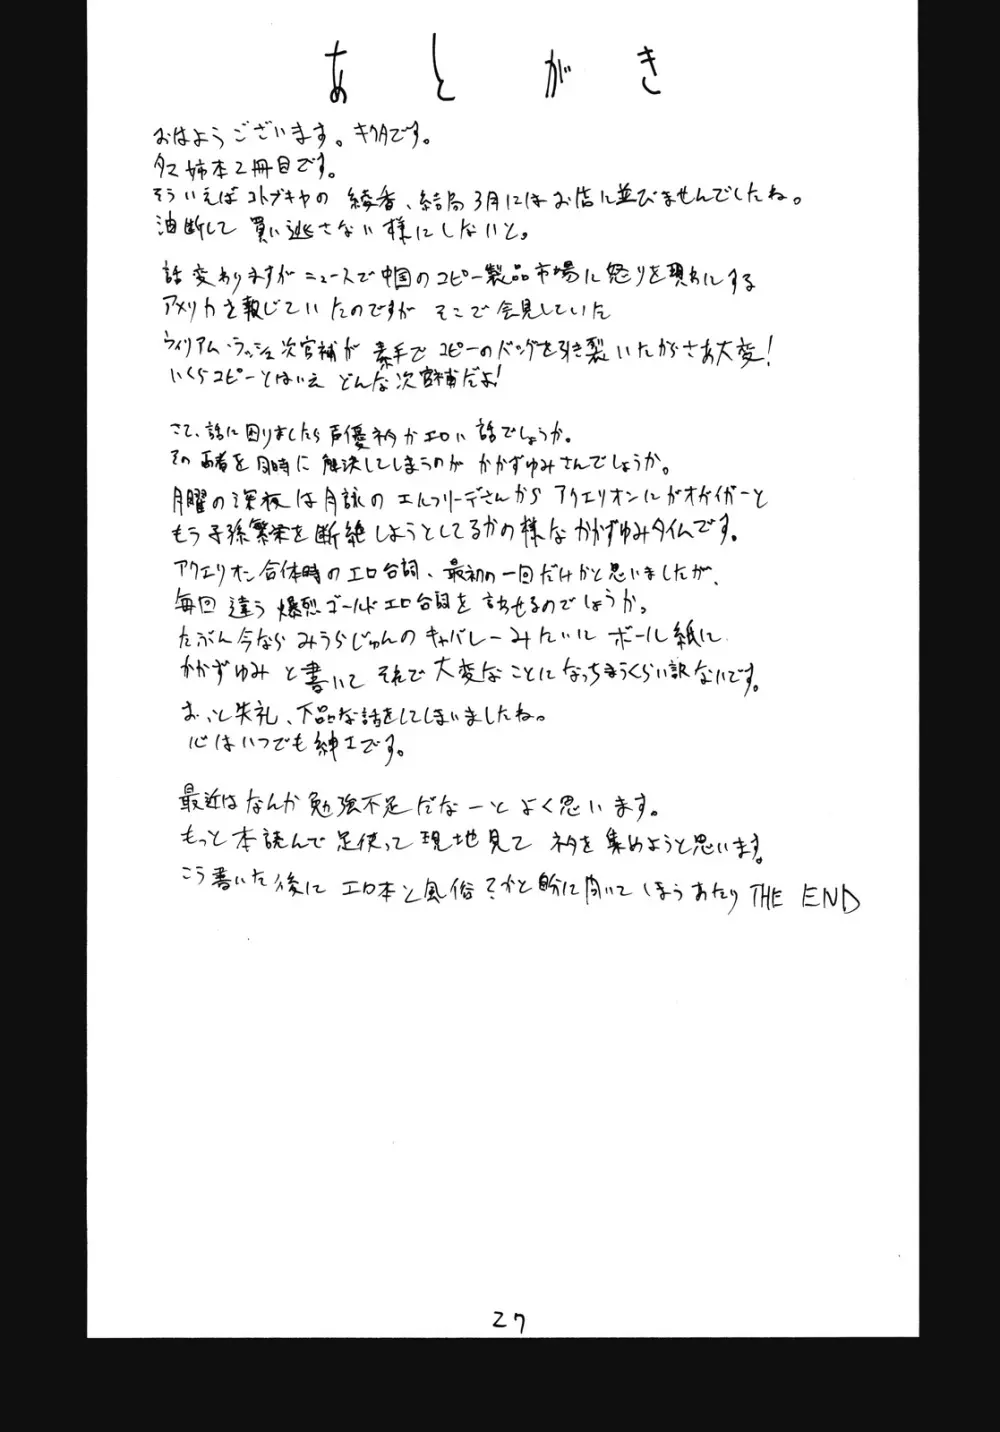 あとがき
おはようございます。キクタです。
タマ姉本2冊目です。
そういえばコトブキヤの 綾香、結局3月にはお店に並びませんでしたね。
油断して買い逃さない様にしないと。
話変わりますがニュースで中国のコピー製品市場に怒りを現わにする
アメリカを報じていたのですが そこで会見していた
ウィリアム・ラッシュ次官補が 素手でコピーのバッグを引き裂いたがさあ大変!
いくらコピーとはいえ どんな次官補だよ!
さて、話に困りましたら声優ネタかエロい話でしょうか。
その両者を同時に解決してしまうのが かかずゆみさんでしょうか。
月曜の深夜は月詠のエルフリーデさんから アクエリオンにガオガイガーと
もう子孫繁栄を断絶しようとしてるかの様なかかずゆみタイムです。
アクエリオン合体時のエロ台詞、最初の一回だけかと思いましたが、
毎回違う爆烈ゴールドエロ台詞を言わせるのでしょうか。
たぶん今なら みうらじゅんのキャバレーみたいに ボール紙に
かかずゆみ と書いて それで大変なことになっちまうくらい訳ないです。
おっと失礼、下品な話をしてしまいましたね。
心はいつでも紳士です。
最近はなんか勉強不足だなーとよく思います。
もっと本読んで足使って現地見て ネタを集めようと思います。
こう書いた後に エロ本と風俗?かと に向いてしまうあたり THE END
27